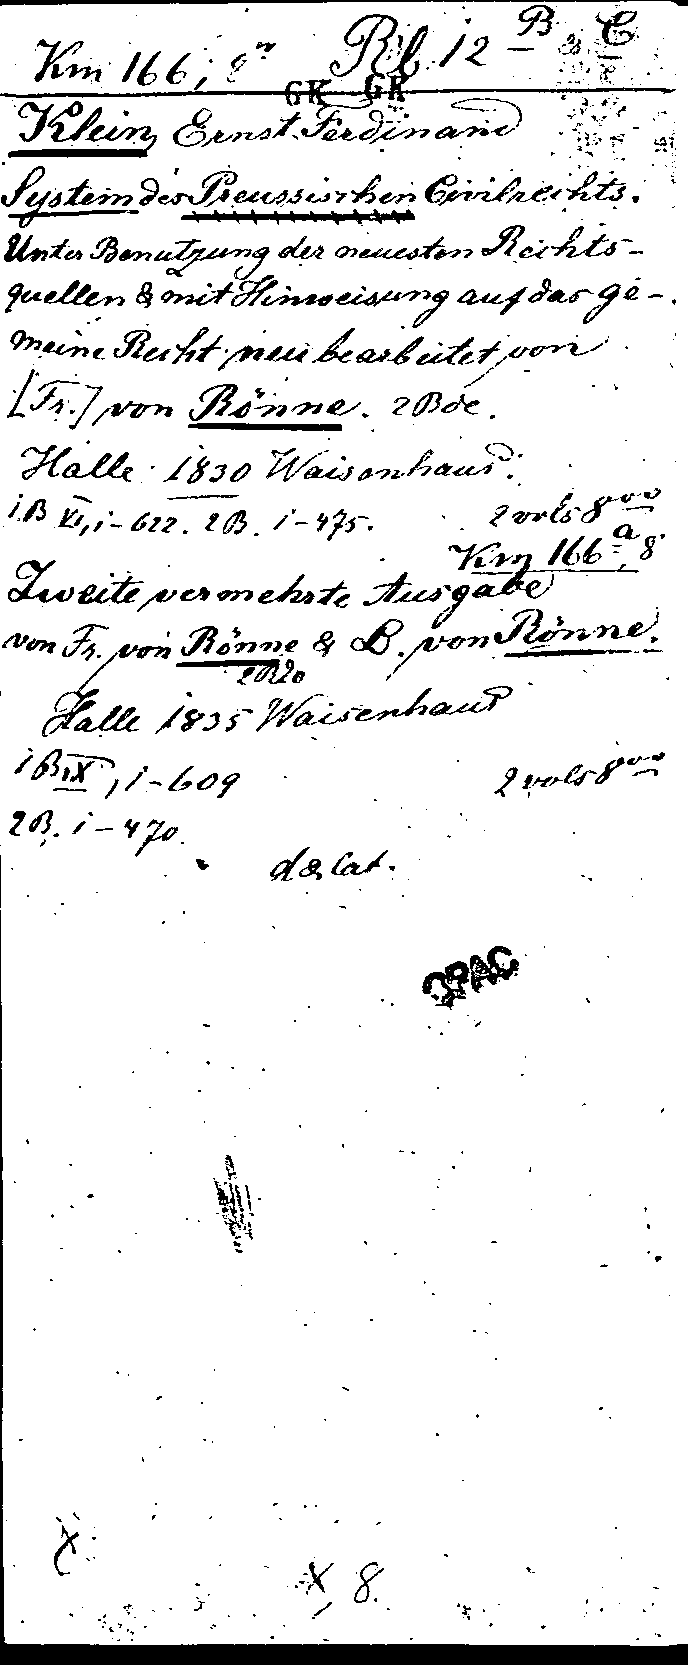 Km 166, 8vo Rb 12 B & C
GK GK
Klein, Ernst Ferdinand
System des Preussischen Civilrechts.
Unter Benutzung der neuesten Rechts-
quellen & mit Hinweisung auf das ge-
meine Recht neu bearbeitet von
[Fr.] von Rönne. 2 Bde.
Halle 1830 Waisenhaus.
1B XI, 1-622. 2B. 1-475. 2 vols 8voo
Km 166a, 8
Zweite vermehrte Ausgabe
von Fr. von Rönne & L. von Rönne.
Halle 1835 Waisenhaus
1B IX, 1-609 2 vols 8voo
2B. 1-470.
OPAC
X X, 8.